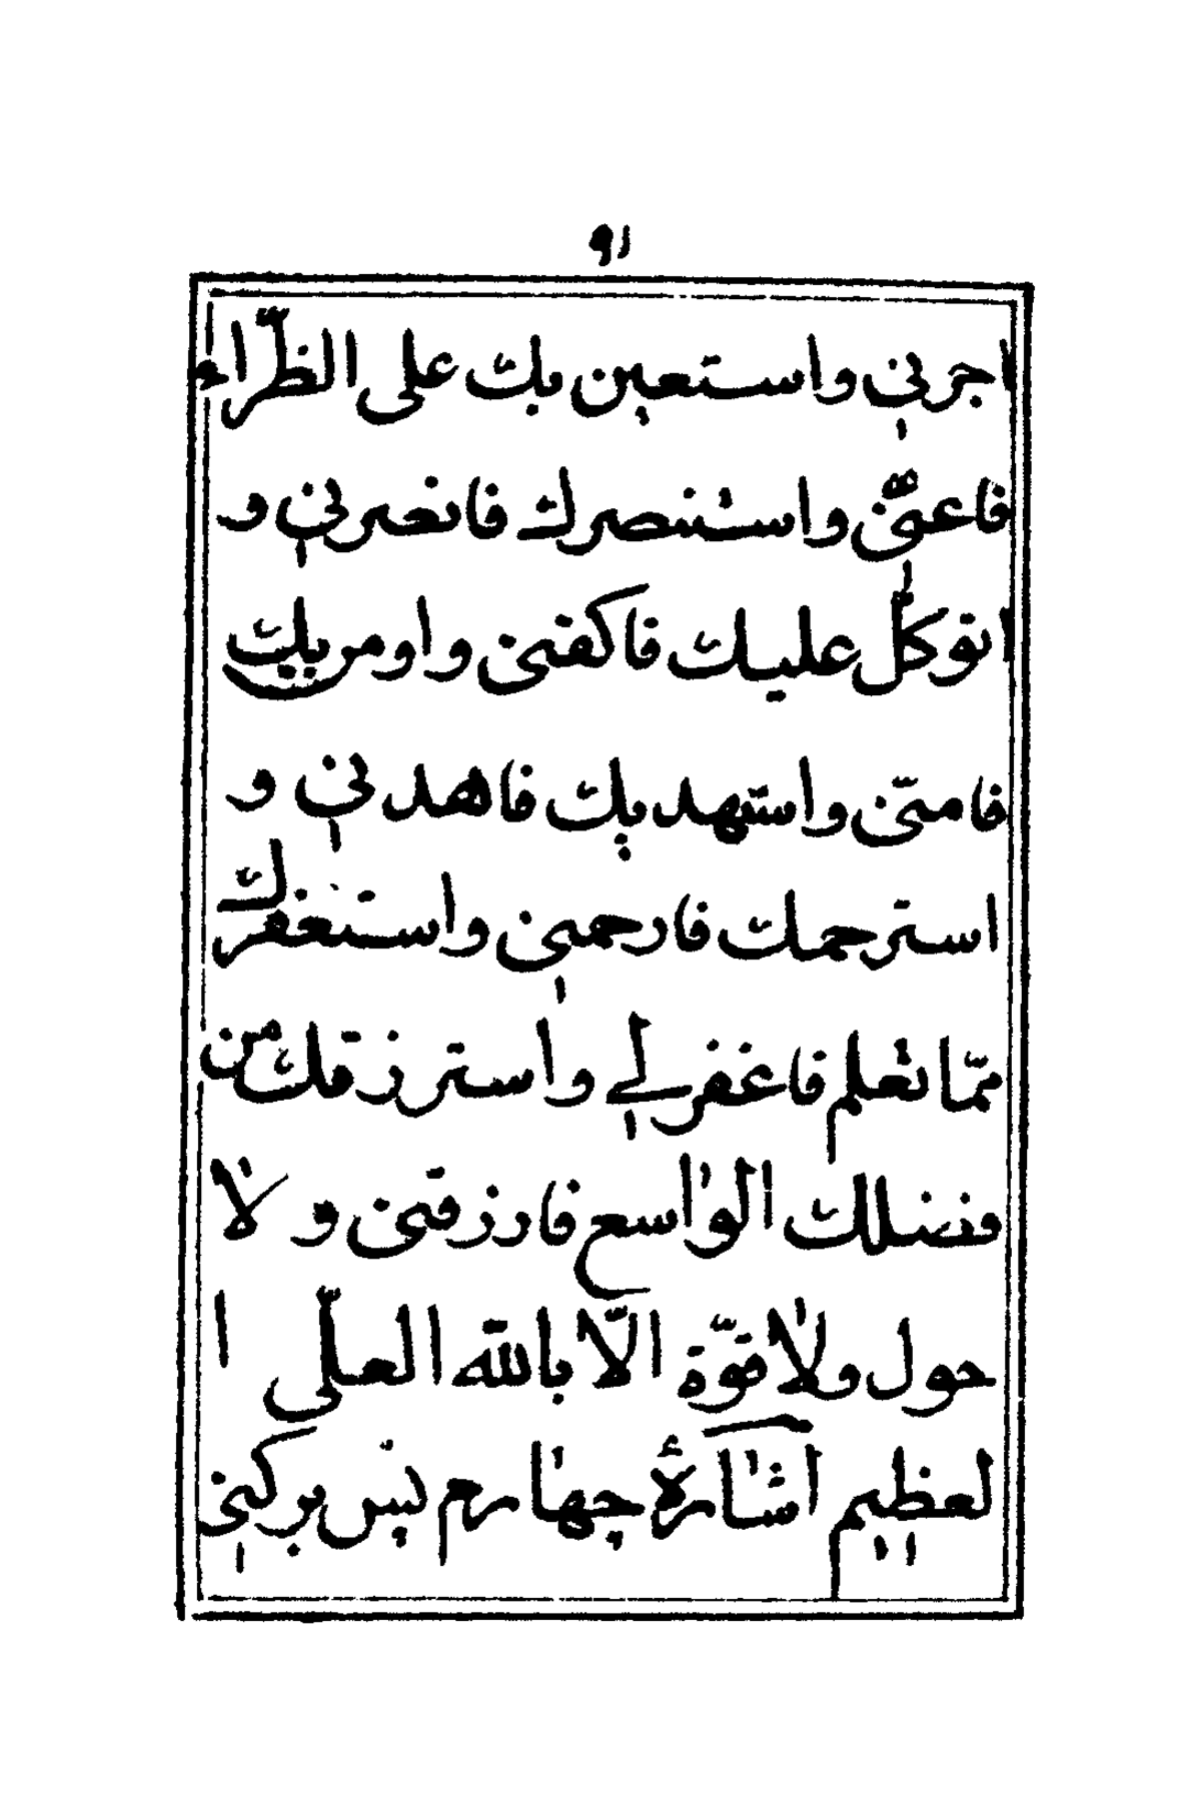 ٩١
اجرنی واستعین بك علی الظرّاء
فاعنّی واستنصرك فانصرنی و
اتوكّل علیك فاكفنی واومن بك
فامنّی واستهدیك فاهدنی و
استرحمك فارحمنی واستغفرك
ممّا تعلم فاغفرلی واسترزقك من
فضلك الواسع فارزقنی ولا
حول ولا قوّة الّا بالله العلّی ا
لعظیم اشارهٔ چهارم پس بركنی